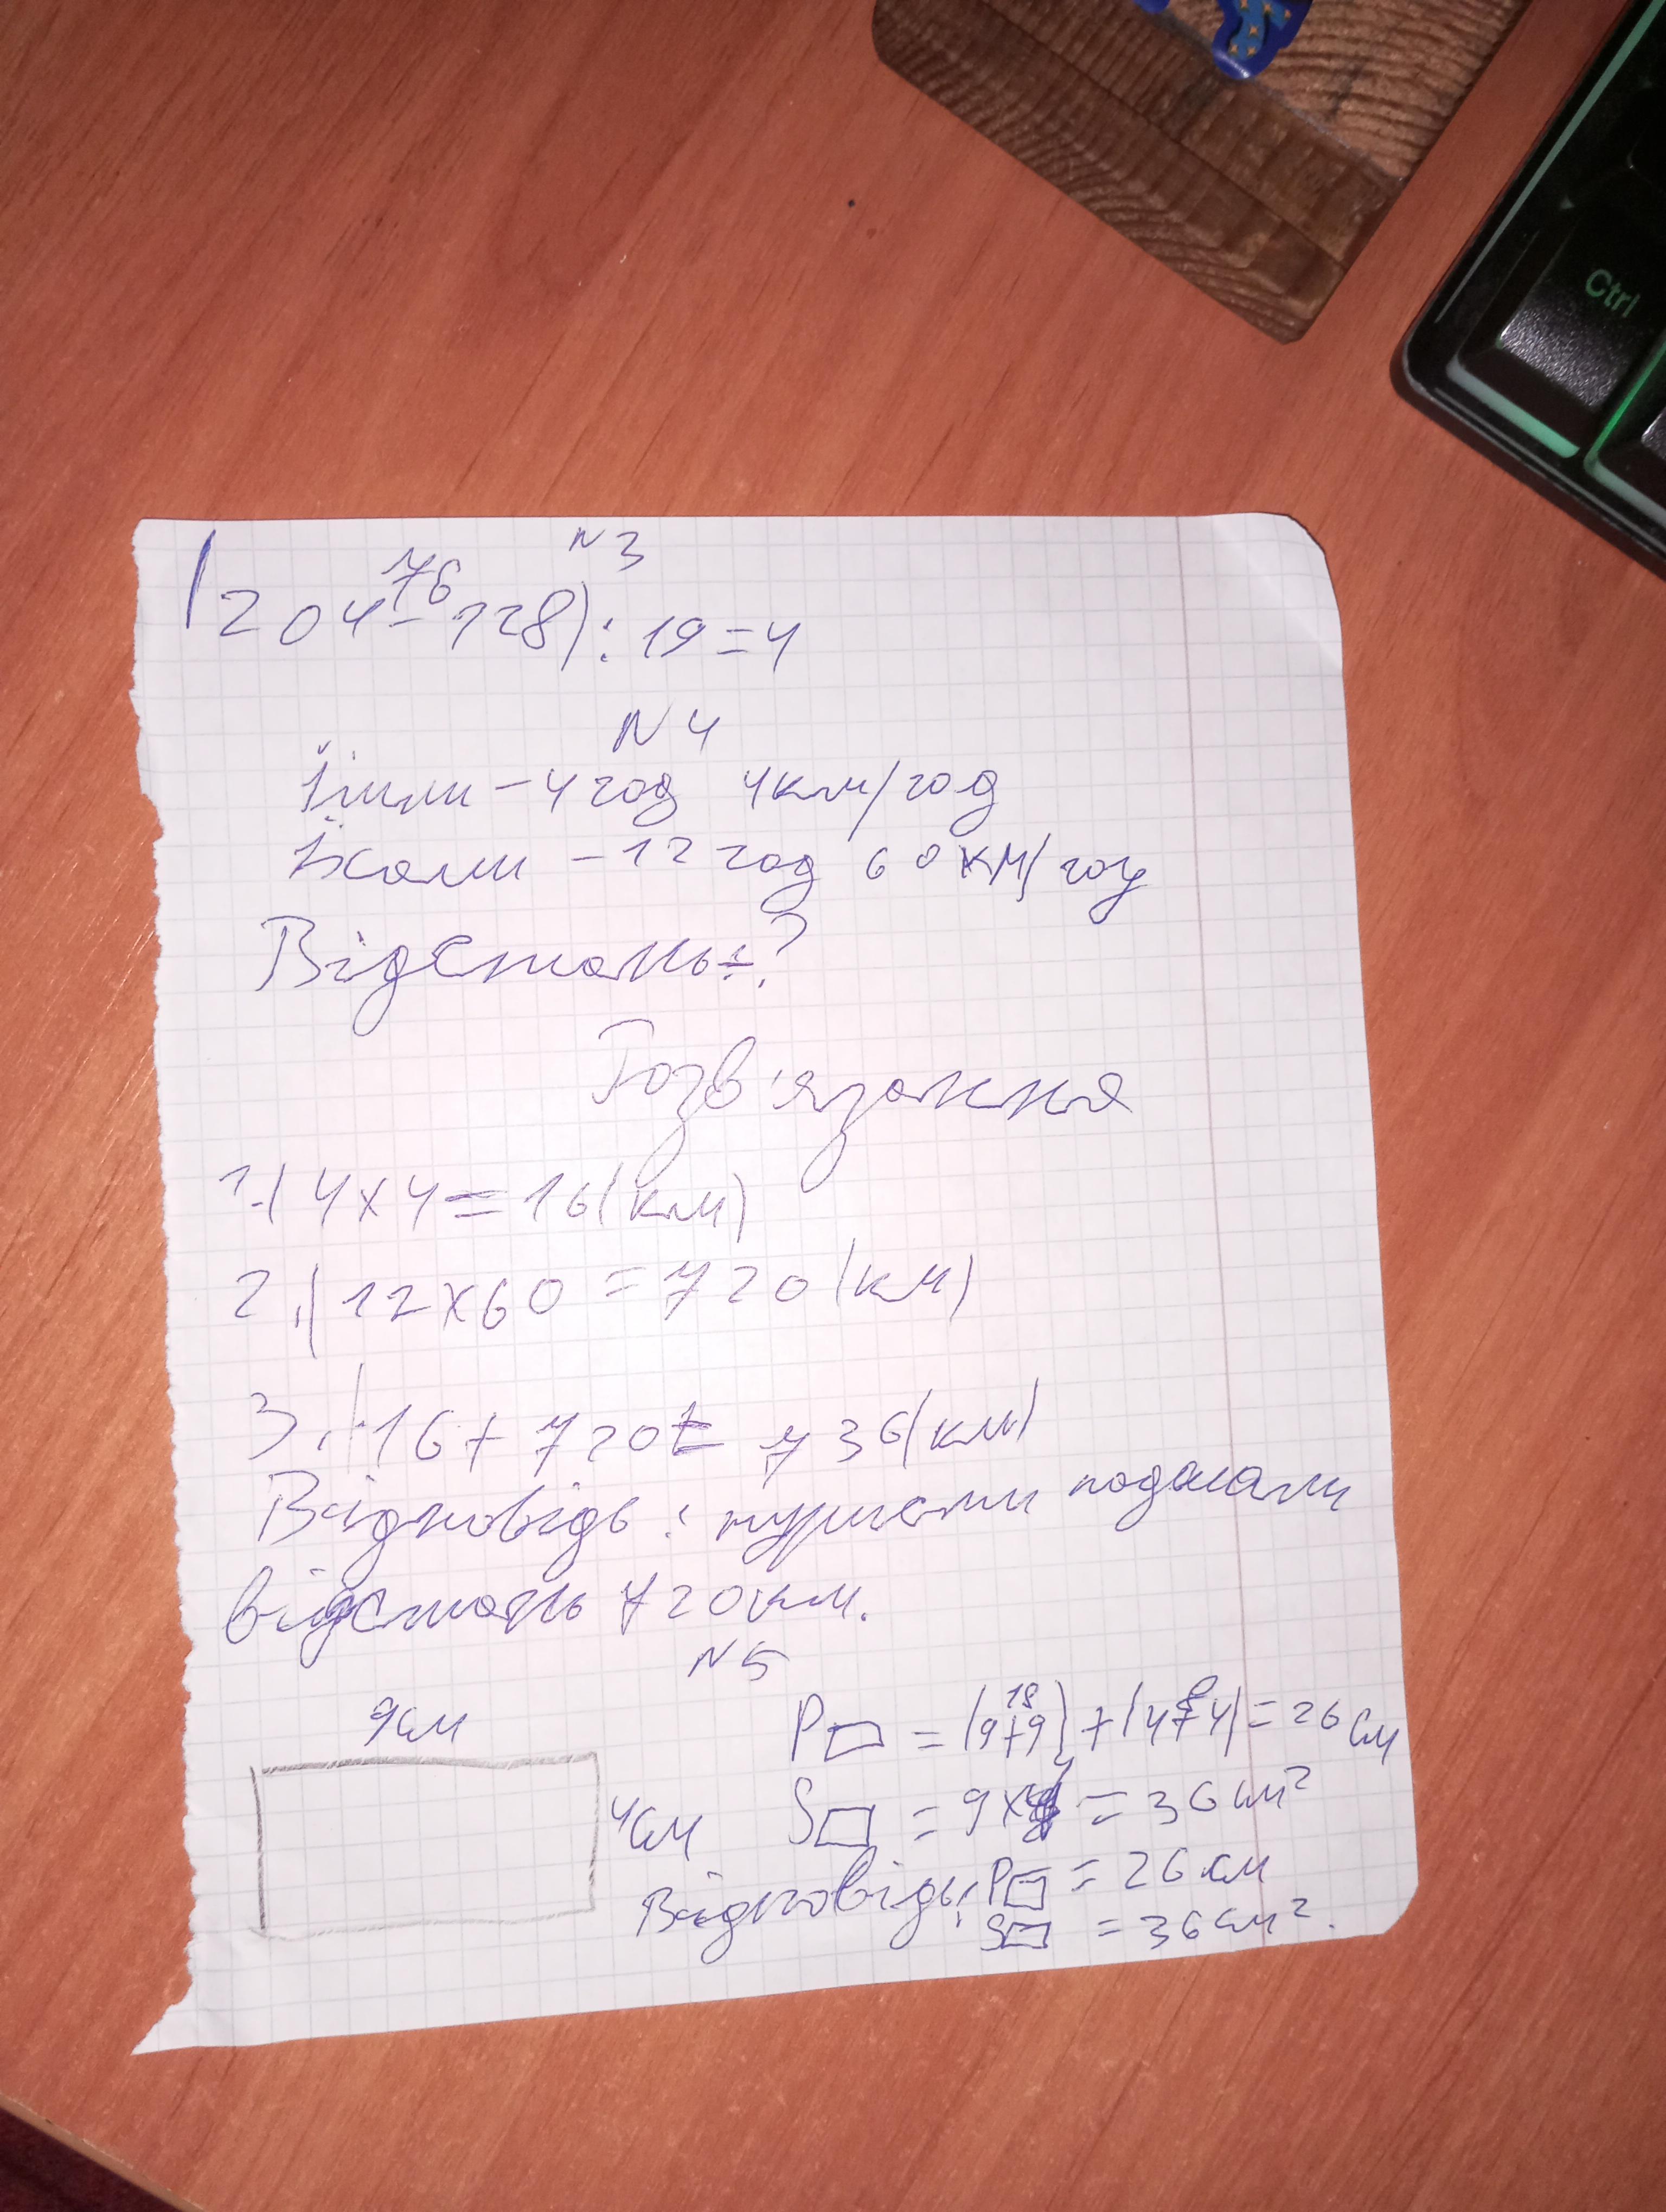 Ctrl
N3
76
(204-128):19=4
N4
Йшли – 4 год 4км/год
Їхали – 12 год 60км/год
Відстань-?
Розв'язання
1.) 4×4=16(км)
2.) 12×60=720(км)
3.) 16+720=736(км)
Відповідь: подолали
відстань 720км.
N5
9см
18 8
P▭ = (9+9)+(4+4)=26см
4см
S▭ = 9×4=36см²
Відповідь: P▭=26см
S▭ =36см².